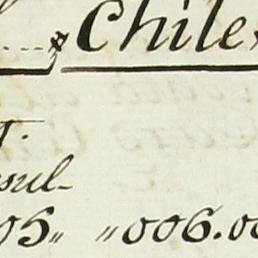 Chile
sul-
05,, ,,006.00